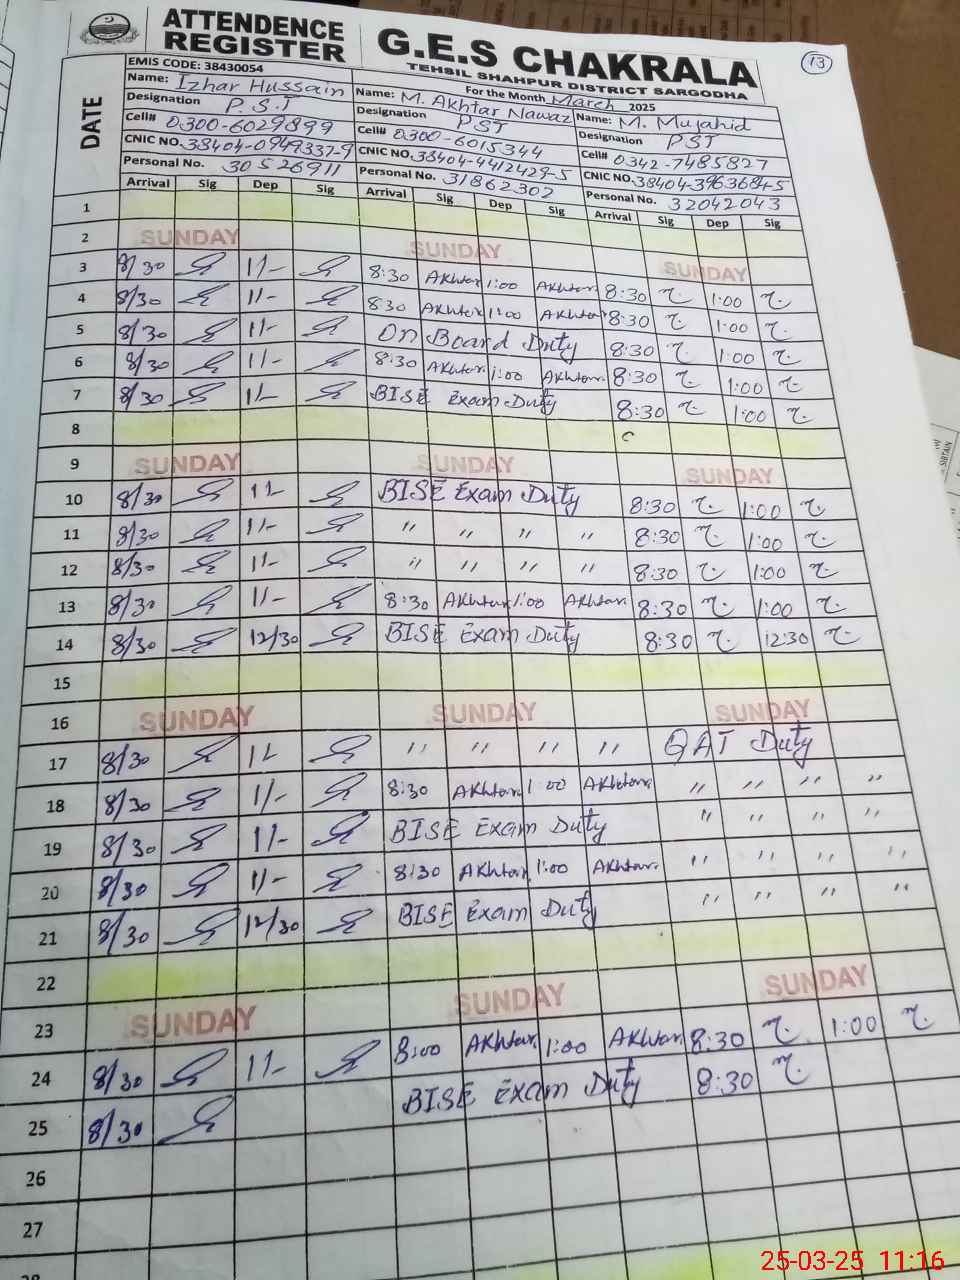 ATTENDENCE REGISTER
G.E.S CHAKRALA
13
TEHSIL SHAHPUR DISTRICT SARGODHA
EMIS CODE: 38430054
For the Month March 2025
DATE
Name: Izhar Hussain Name: M. Akhtar Nawaz Name: M. Mujahid
Designation P.S.T Designation PST Designation PST
Cell# 0300-6029899 Cell# 0300-6015344 Cell# 0342-7485827
CNIC NO. 38404-0949337-9 CNIC NO. 38404-4412429-5 CNIC NO. 38404-3963684-5
Personal No. 30526911 Personal No. 31862302 Personal No. 32042043
Arrival Sig Dep Sig Arrival Sig Dep Sig Arrival Sig Dep Sig
1
2 SUNDAY SUNDAY SUNDAY
3 8/30 1/- 8:30 Akhtar 1:00 Akhtar 8:30 1:00
4 8/30 1/- 8:30 Akhtar 1:00 Akhtar 8:30 1:00
5 8/30 1/- On Board Duty 8:30 1:00
6 8/30 1/- 8:30 Akhtar 1:00 Akhtar 8:30 1:00
7 8/30 1/- BISE Exam Duty 8:30 1:00
8
9 SUNDAY SUNDAY SUNDAY
10 8/30 1/- BISE Exam Duty 8:30 1:00
11 8/30 1/- " " " " 8:30 1:00
12 8/30 1/- " " " " 8:30 1:00
13 8/30 1/- 8:30 Akhtar 1:00 Akhtar 8:30 1:00
14 8/30 12/30 BISE Exam Duty 8:30 12:30
15
16 SUNDAY SUNDAY SUNDAY
17 8/30 1/- " " " " QAT Duty
18 8/30 1/- 8:30 Akhtar 1:00 Akhtar " " " "
19 8/30 1/- BISE Exam Duty " " " "
20 8/30 1/- 8:30 Akhtar 1:00 Akhtar " " " "
21 8/30 12/30 BISE Exam Duty " " " "
22
23 SUNDAY SUNDAY SUNDAY
24 8/30 1/- 8:00 Akhtar 1:00 Akhtar 8:30 1:00
25 8/30 BISE Exam Duty 8:30
26
27
28
SIBTAIN
25-03-25 11:16